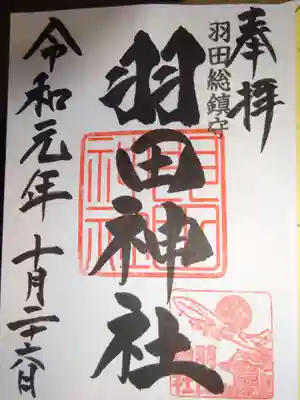 奉拝
羽田総鎮守
羽田神社
令和元年 十月二十六日